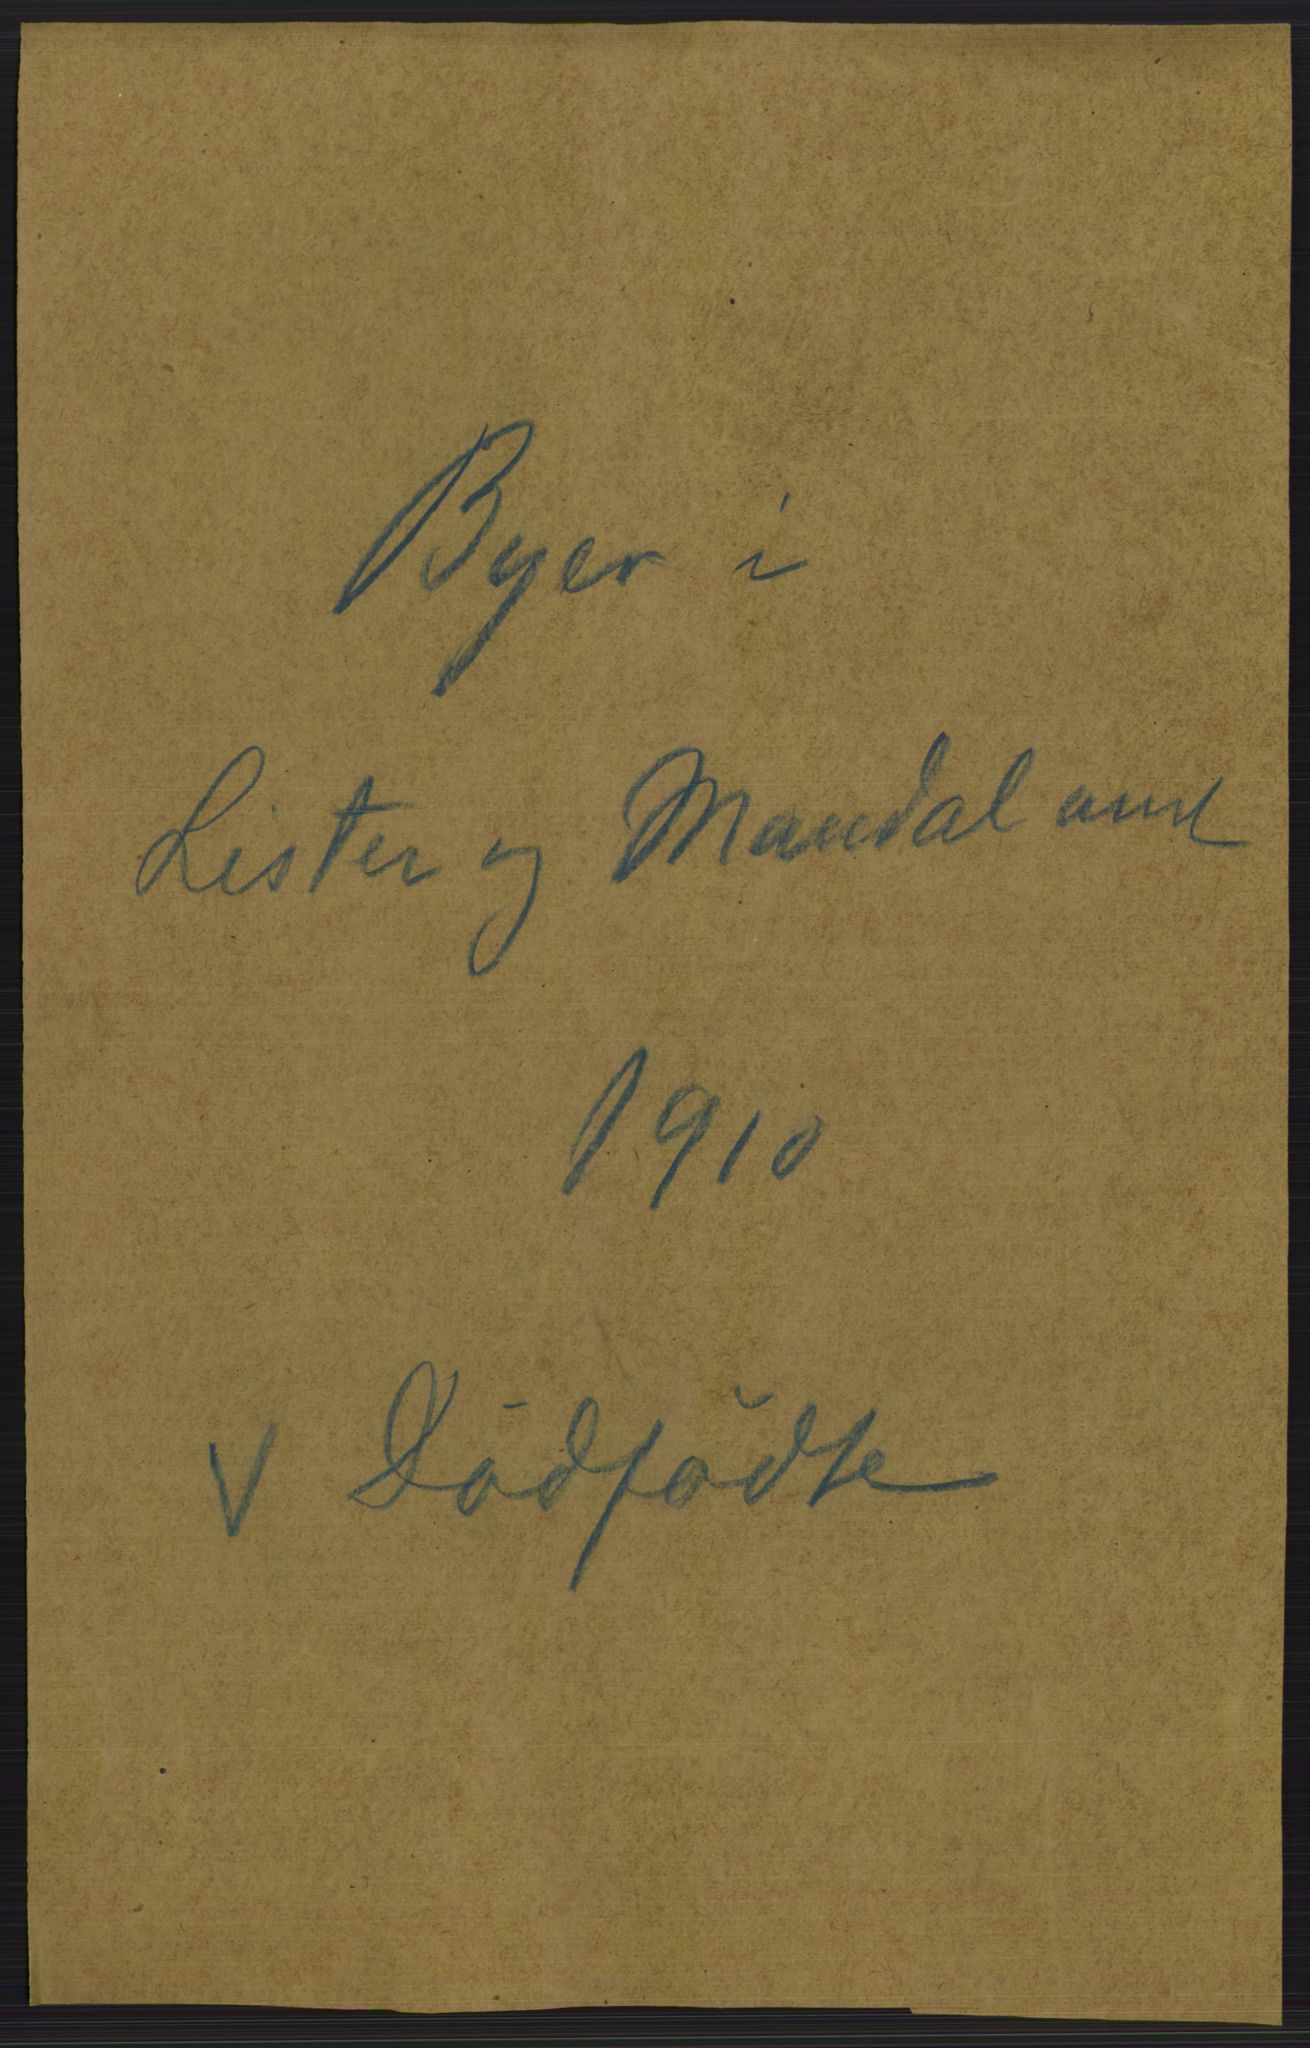 Byer i
Lister og Mandal amt
1910
V Dödfödte